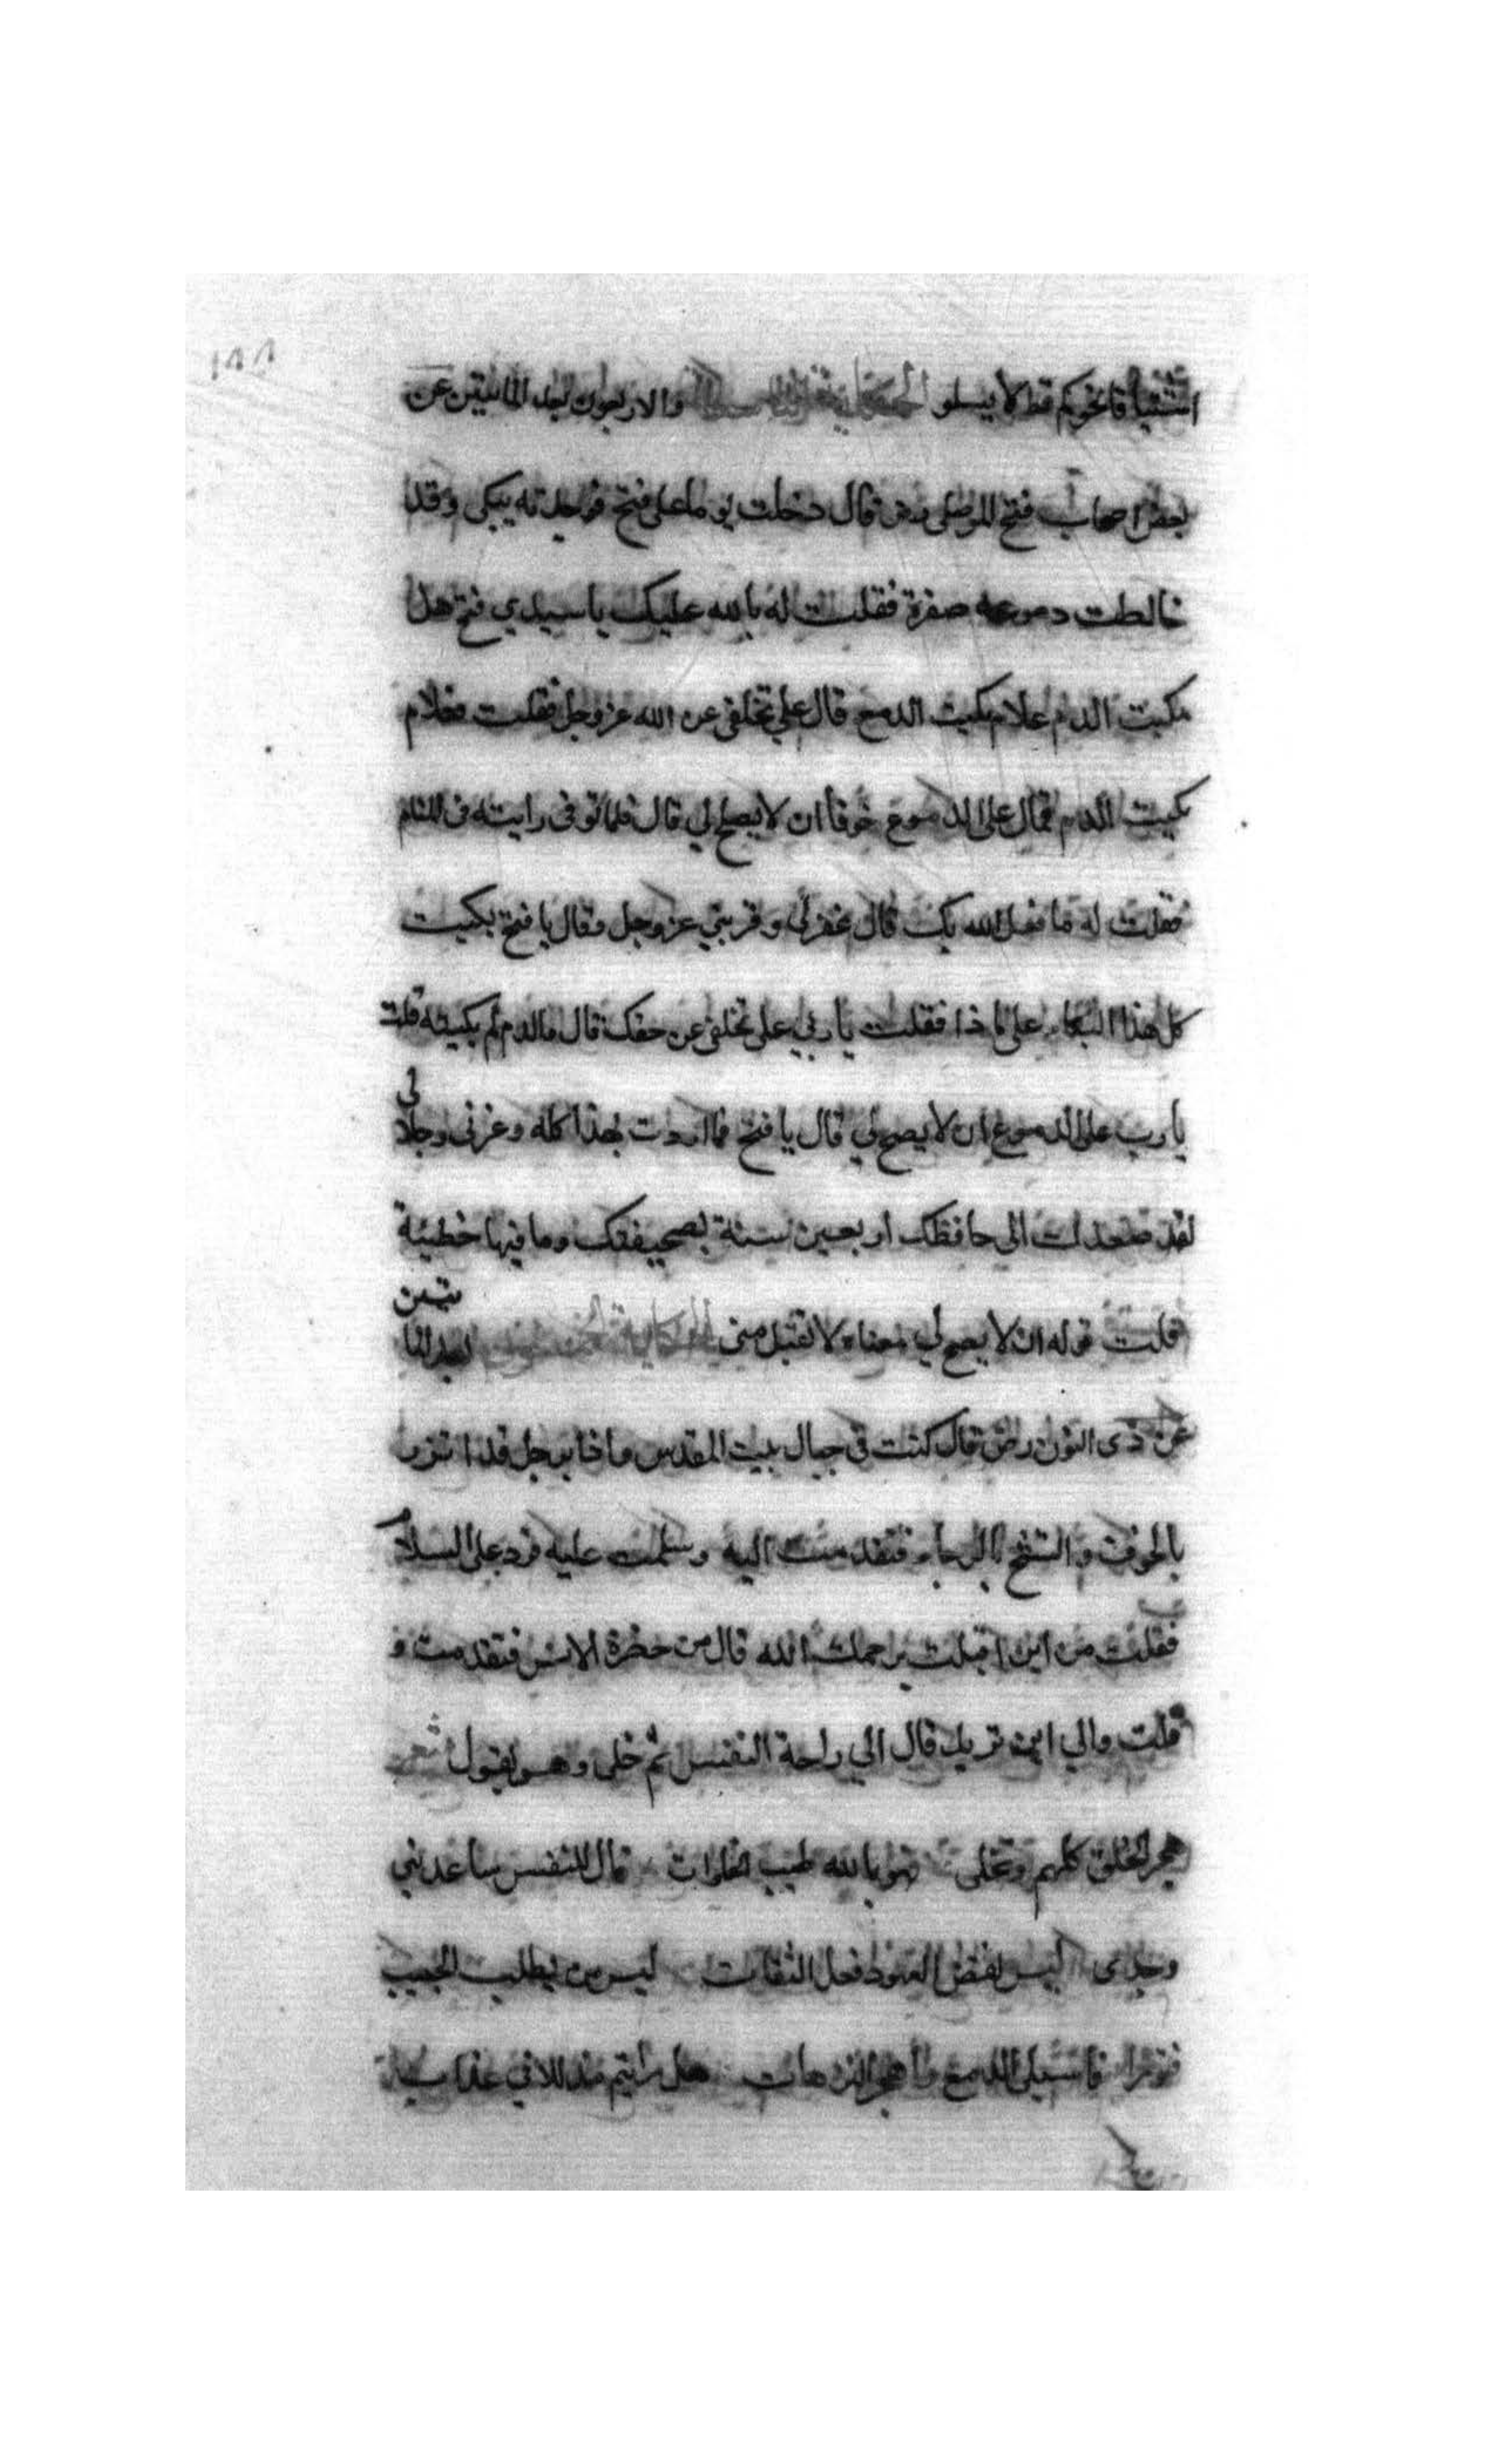 ١٩٨
اشتياقا نحوكم قط لا يسلو الحكاية والاربعون بعد المائتين عن
بعض اصحاب فتح الموصلي رض قال دخلت يوما على فتح فوجدته يبكى وقد
خالطت دموعه صفرة فقلت له بالله عليك يا سيدي فتح هل
بكيت الدم علام بكيت الدمع قال على تخلفى عن الله عز وجل فقلت فعلام
بكيت الدم فقال على الدموع خوفا ان لا يصح لي قال فلما توفى رايته فى المنام
فقلت له ما فعل الله بك قال غفر لى وقربني عز وجل وقال يا فتح بكيت
كل هذا البكاء على ماذا فقلت يا ربي على تخلفى عن حقك قال فالدم لم بكيته قلت
يا رب على الدموع ان لا يصح لي قال يا فتح فما اردت بهذا كله وعزتى وجلالى
لقد صعد الي حافظك اربعين سنة بصحيفتك وما فيها خطيئة
قلت قوله ان لا يصح لي معناه لا تقبل منى الحكاية بعد المائتين
عن ذى النون رض قال كنت في جبال بيت المقدس فاذا برجل قد اتزر
بالخوف واتشح بالرجاء فتقدمت اليه وسلمت عليه فرد على السلام
فقلت من اين اقبلت يرحمك الله قال من حضرة الانس فتقدمت و
قلت والي اين تريد قال الي راحة النفس ثم خلى وهو يقول شعر
هجر الخلق كلهم وتخلى فهو بالله طيب الخلوات قال للنفس ساعديني
وجدى ليس نقض العهود فعل الثقات ليس من يطلب الحبيب
فاسبلى الدمع واهجر هل رايتم مدللا في عذاب